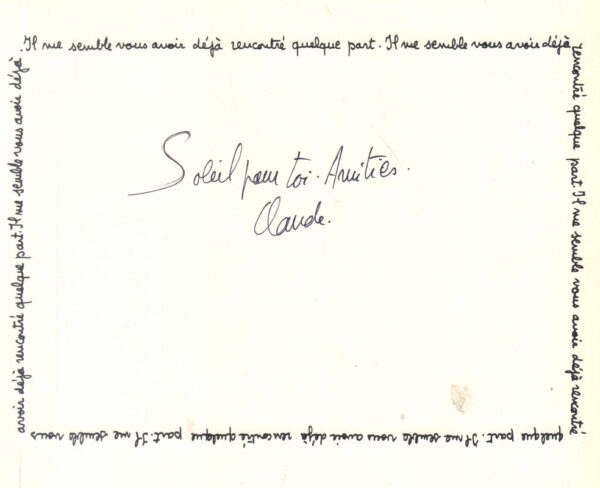 .Il me semble vous avoir déjà rencontré quelque part. Il me semble vous avoir déjà
rencontré quelque part. Il me semble vous avoir déjà rencontré
quelque part. Il me semble vous avoir déjà rencontré quelque part. Il me semble vous
avoir déjà rencontré quelque part. Il me semble vous avoir déjà
Soleil pour toi. Amitiés.
Claude.